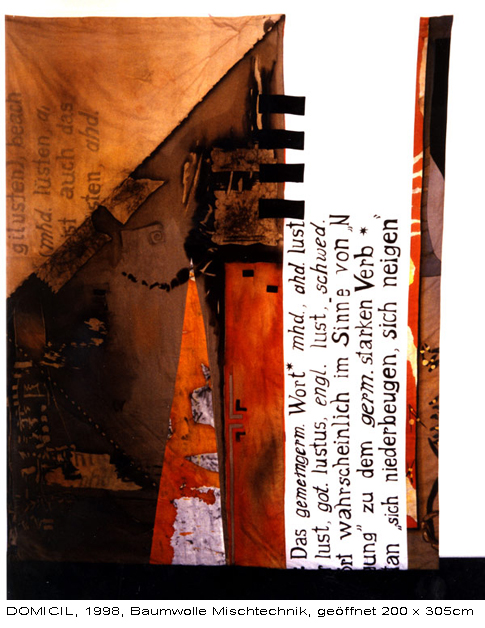 gilusten), beach
(mhd. lüsten, a
st auch das
sten, ahd.
Das gemeingerm. Wort* mhd., ahd. lust
lust, got. lustus, engl. lust, schwed.
wahrscheinlich im Sinne von „N
gung" zu dem germ. starken Verb *
tan „sich niederbeugen, sich neigen"
DOMICIL, 1998, Baumwolle Mischtechnik, geöffnet 200 x 305cm